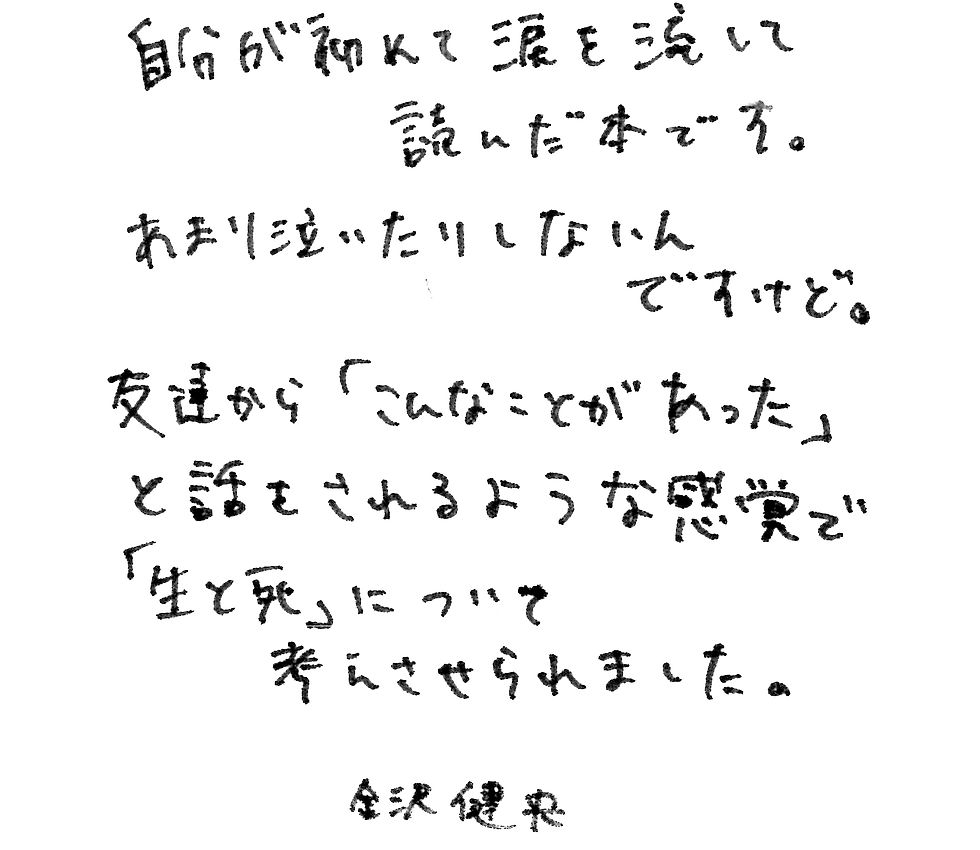 自分が初めて涙を流して
読んだ本です。
あまり泣いたりしないん
ですけど。
友達から「こんなことがあった」
と話をされるような感覚で
「生と死」について
考えさせられました。
金沢健央